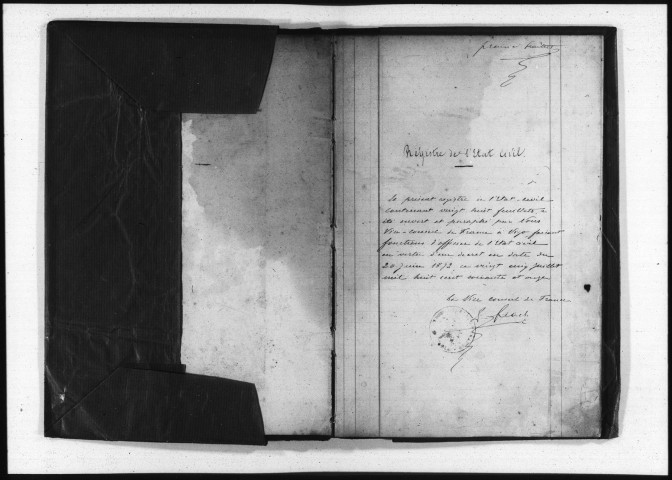 Registre de l'Etat Civil.
Le présent registre de l'Etat-civil
contenant vingt huit feuillets, a
été ouvert et paraphé par Nous
Vice-consul de France à Vigo faisant
fonctions d'officier de l'Etat civil
en vertu d'un decret en date du
20 juin 1872 ce vingt cinq juillet
mil huit cent soixante et onze
Le Vice consul de France